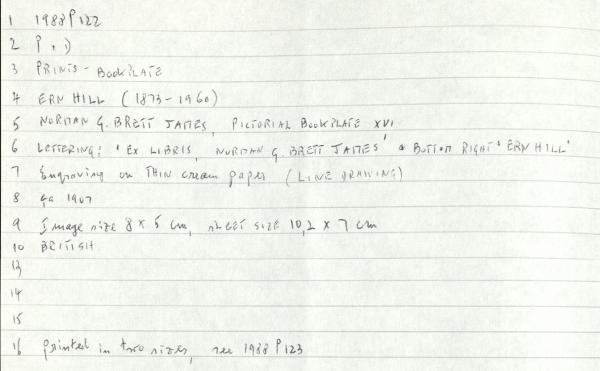 1 1988 P 122
2 P. 1)
3 PRINTS - BOOKPLATE
4 ERN HILL (1873-1960)
5 NORMAN G. BRETT JAMES, PICTORIAL BOOKPLATE XVI
6 LETTERING: 'EX LIBRIS, NORMAN G. BRETT JAMES' & BOTTOM RIGHT 'ERN HILL'
7 Engraving on THIN cream paper (LINE DRAWING)
8 ca 1907
9 Image size 8 x 5 cm, SHEET SIZE 10,2 x 7 cm
10 BRITISH
13
14
15
16 printed in two sizes, see 1988 P 123